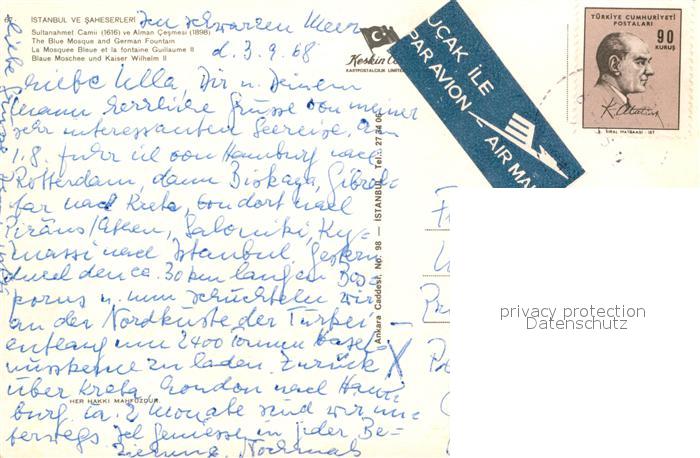 ISTANBUL VE ŞAHESERLERİ
Sultanahmet Camii (1616) ve Alman Çeşmesi (1898)
The Blue Mosque and German Fountain
La Mosquee Bleue et la fontaine Guillaume II
Blaue Moschee und Kaiser Wilhelm II
Im schwarzen Meer
d. 3.9.68
Liebe Ulla, Dir u. Deinem
Mann herrliche Grüsse von meiner
sehr interessanten Seereise. Am
1.8. fuhr ich von Hamburg nach
Rotterdam, dann Biskaya, Gibral-
tar nach Kreta, von dort nach
Piräus/Athen, Saloniki,
nach Istanbul. Gestern
durch den ca. 30 km langen Bos-
porus u. nun schuckeln wir
an der Nordküste der Türkei
entlang um 2400 Tonnen Hasel-
nusskerne zu laden. Zurück
über Kreta London nach Ham-
burg. Ca. 2 Monate sind wir un-
terwegs. Ich geniesse in jeder Be-
ziehung. Nochmals
liebe Grüsse
HER HAKKI MAHFUZDUR.
Keskin
KARTPOSTALCILIK LIMITED
Ankara Caddesi, No: 98 — İSTANBUL Tel.: 27 34 06
UÇAK İLE
PAR AVION
AIR MA
TÜRKİYE CUMHURİYETİ
POSTALARI
90
KURUŞ
K. Atatürk
privacy protection
Datenschutz